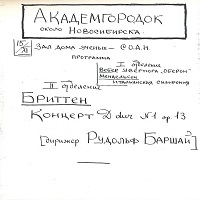 АКАДЕМГОРОДОК
ОКОЛО НОВОСИБИРСКА.
15/XI ЗАЛ ДОМА УЧЕНЫХ – С О А Н.
ПРОГРАММА
I отделение
ВЕБЕР УВЕРТЮРА „ОБЕРОН"
МЕНДЕЛЬСОН
ИТАЛЬЯНСКАЯ СИМФОНИЯ
II отделение
БРИТТЕН
КОНЦЕРТ D dur № 1 op. 13
[Дирижер РУДОЛЬФ БАРШАЙ]